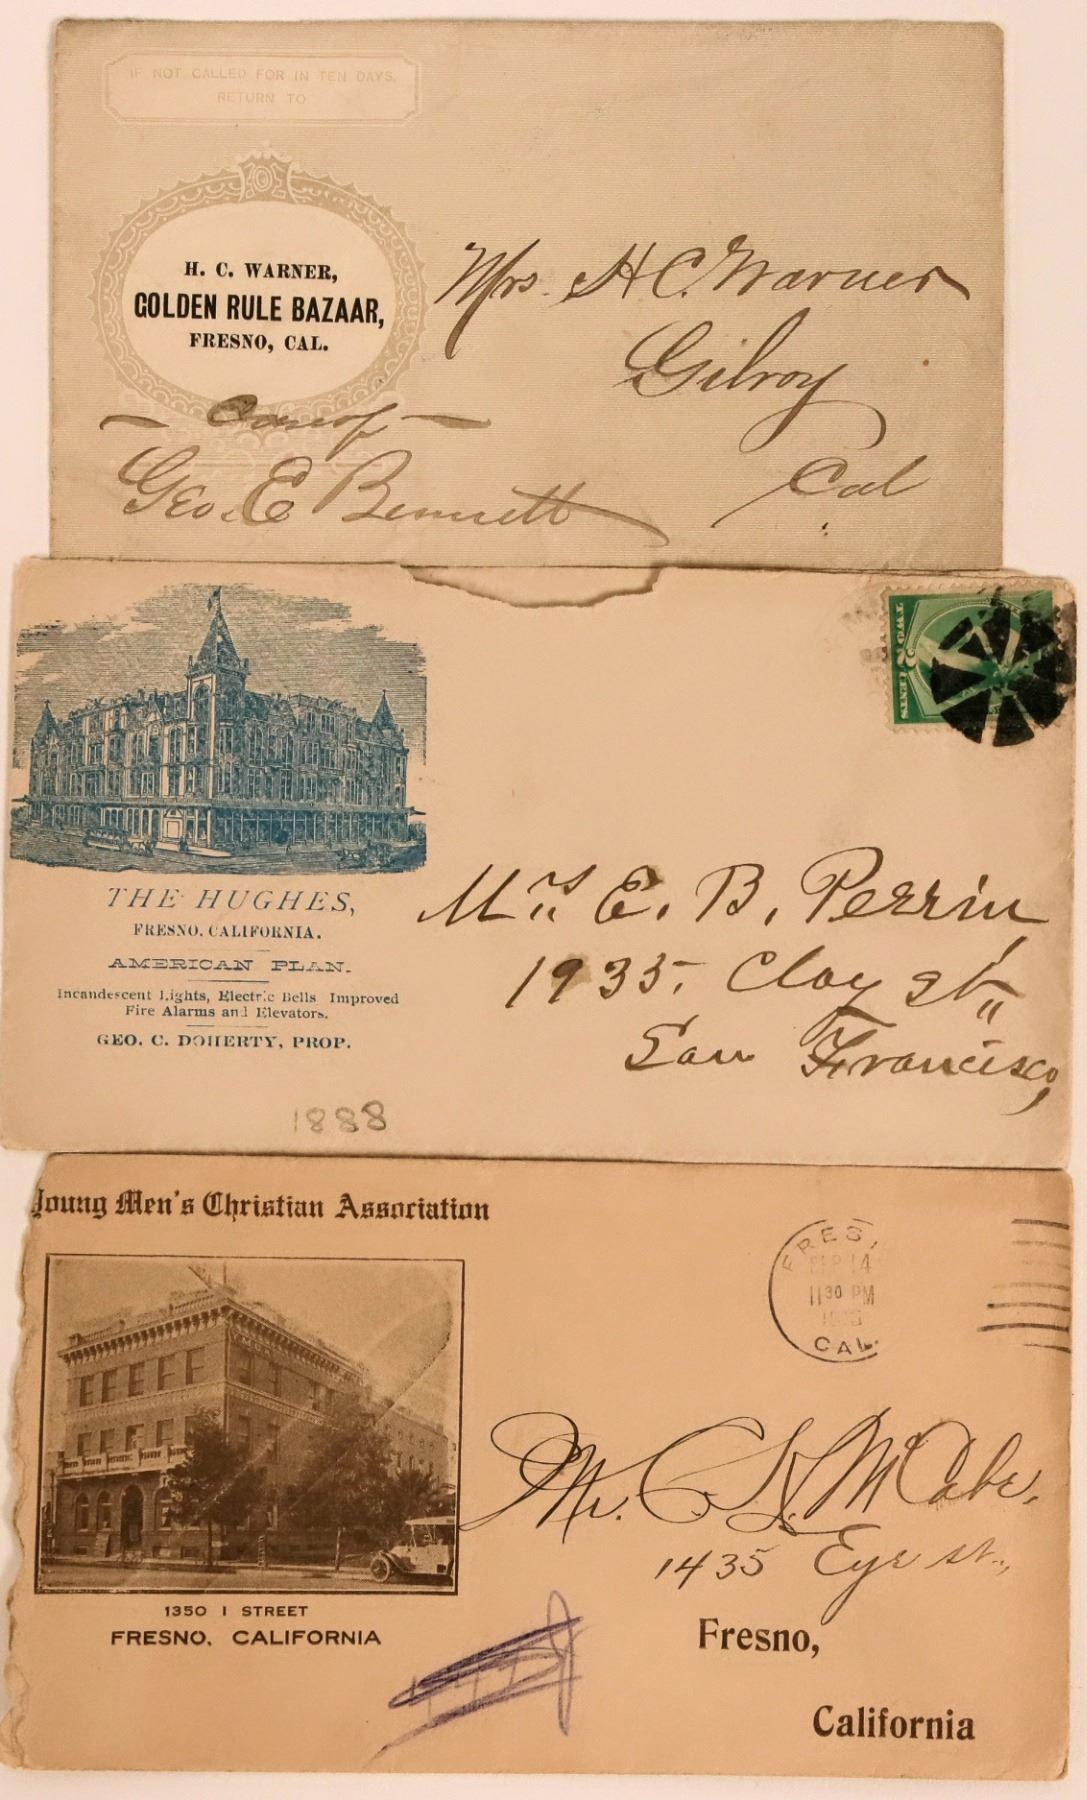 IF NOT CALLED FOR IN TEN DAYS,
RETURN TO
H. C. WARNER,
GOLDEN RULE BAZAAR,
FRESNO, CAL.
Mrs. H C. Warner
Gilroy
Cal
Care of
Geo. E Bennett
TWO 2 CENTS
THE HUGHES,
FRESNO, CALIFORNIA.
AMERICAN PLAN.
Incandescent Lights, Electric Bells Improved
Fire Alarms and Elevators.
GEO. C. DOHERTY, PROP.
1888
Mrs. E. B. Perrin
1935. Clay St.,
San Francisco,
Young Men's Christian Association
YMCA
1350 I STREET
FRESNO, CALIFORNIA
FRES
14
11 30 PM
CAL.
Mr. C. L. McCabe.
1435 Eye st.,
Fresno,
California